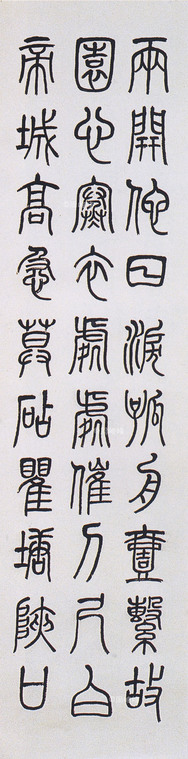 兩開他日淚孤舟壹繫故
園心寒衣處處催刀尺白
帝城高急莫砧瞿塘陜口